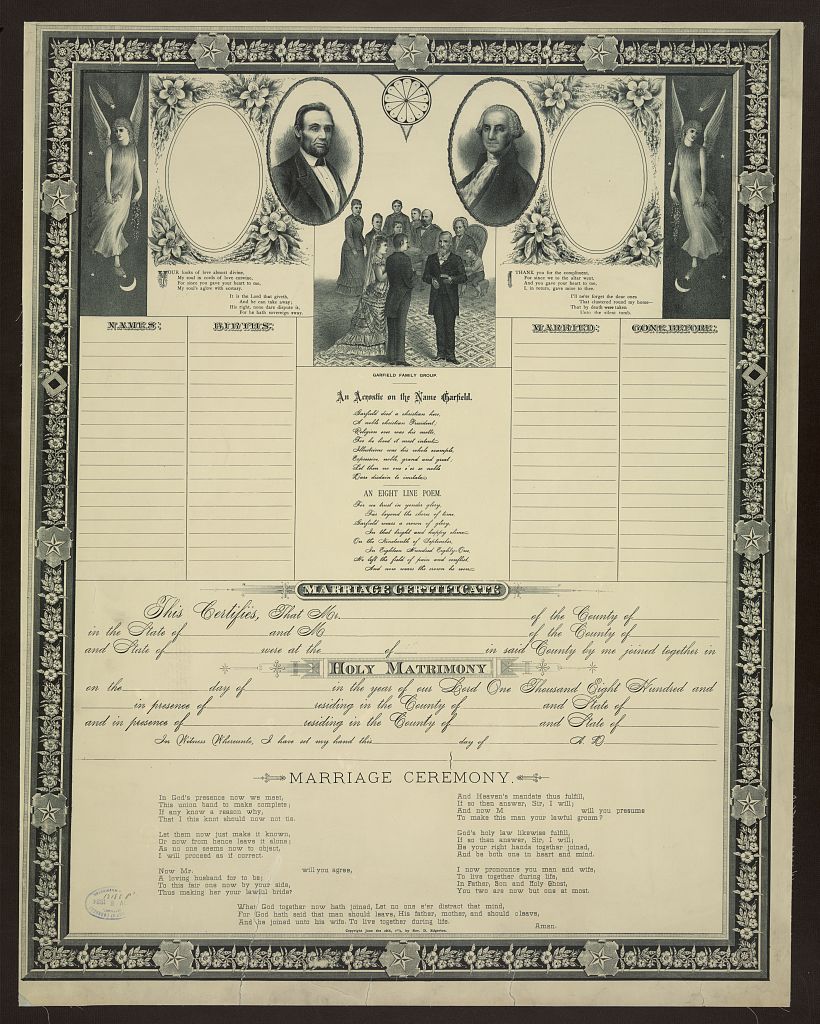 YOUR looks of love almost divine,
My soul in cords of love entwine,
For since you gave your heart to me,
My soul's aglow with ecstasy.
It is the Lord that giveth,
And he can take away;
His right, none dare dispute it,
For he hath sovereign sway.
I THANK you for the compliment,
For since we to the altar went,
And you gave your heart to me,
I, in return, gave mine to thee.
I'll ne'er forget the dear ones
That clustered round my home—
That by death were taken
Unto the silent tomb.
NAMES:
BIRTHS:
MARRIED:
GONE BEFORE:
GARFIELD FAMILY GROUP.
An Acrostic on the Name Garfield.
Garfield died a christian hero,
A noble christian President;
Religion ever was his motto,
For he lived it most intent.
Illustrious was his whole example,
Expressive, noble, grand and great;
Let then no one e'er so noble
Dare disdain to imitate.
AN EIGHT LINE POEM.
For we trust in yonder glory,
Far beyond the shores of time,
Garfield wears a crown of glory,
In that bright and happy clime.
On the Nineteenth of September,
In Eighteen Hundred Eighty-One,
He left the field of pain and conflict,
And now wears the crown he won.
MARRIAGE CERTIFICATE
This Certifies, That Mr. of the County of
in the State of and M of the County of
and State of were at the of in said County by me joined together in
HOLY MATRIMONY
on the day of in the year of our Lord One Thousand Eight Hundred and
in presence of residing in the County of and State of
and in presence of residing in the County of and State of
In Witness Whereunto, I have set my hand this day of A. D.
MARRIAGE CEREMONY.
In God's presence now we meet,
This union band to make complete;
If any know a reason why,
That I this knot should now not tie.
Let them now just make it known,
Or now from hence leave it alone;
As no one seems now to object,
I will proceed as if correct.
Now Mr. will you agree,
A loving husband for to be;
To this fair one now by your side,
Thus making her your lawful bride?
And Heaven's mandate thus fulfill,
If so then answer, Sir, I will;
And now M will you presume
To make this man your lawful groom?
God's holy law likewise fulfill,
If so then answer, Sir, I will;
Be your right hands together joined,
And be both one in heart and mind.
I now pronounce you man and wife,
To live together during life,
In Father, Son and Holy Ghost,
You two are now but one at most.
What God together now hath joined, Let no one e'er distract that mind,
For God hath said that man should leave, His father, mother, and should cleave,
And be joined unto his wife. To live together during life.
Amen.
Copyright June the by Rev. D. Edgerton.